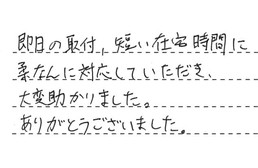 即日の取付，短い在宅時間に
柔なんに対応していただき、
大変助かりました。
ありがとうございました。